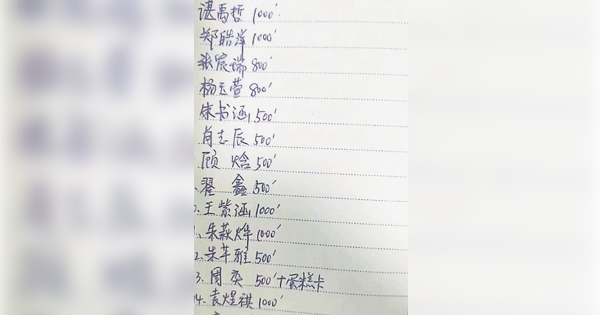 谌禹哲 1000'
郑皓洋 1000'
张宸瑞 800'
杨玉萱 800'
朱书涵 500'
肖志辰 500'
顾焓 500'
翟鑫 500'
王紫涵 1000'
1. 朱菽烨 1000'
2. 朱芊雅 500'
3. 周奕 500'+蛋糕卡
4. 袁煜祺 1000'